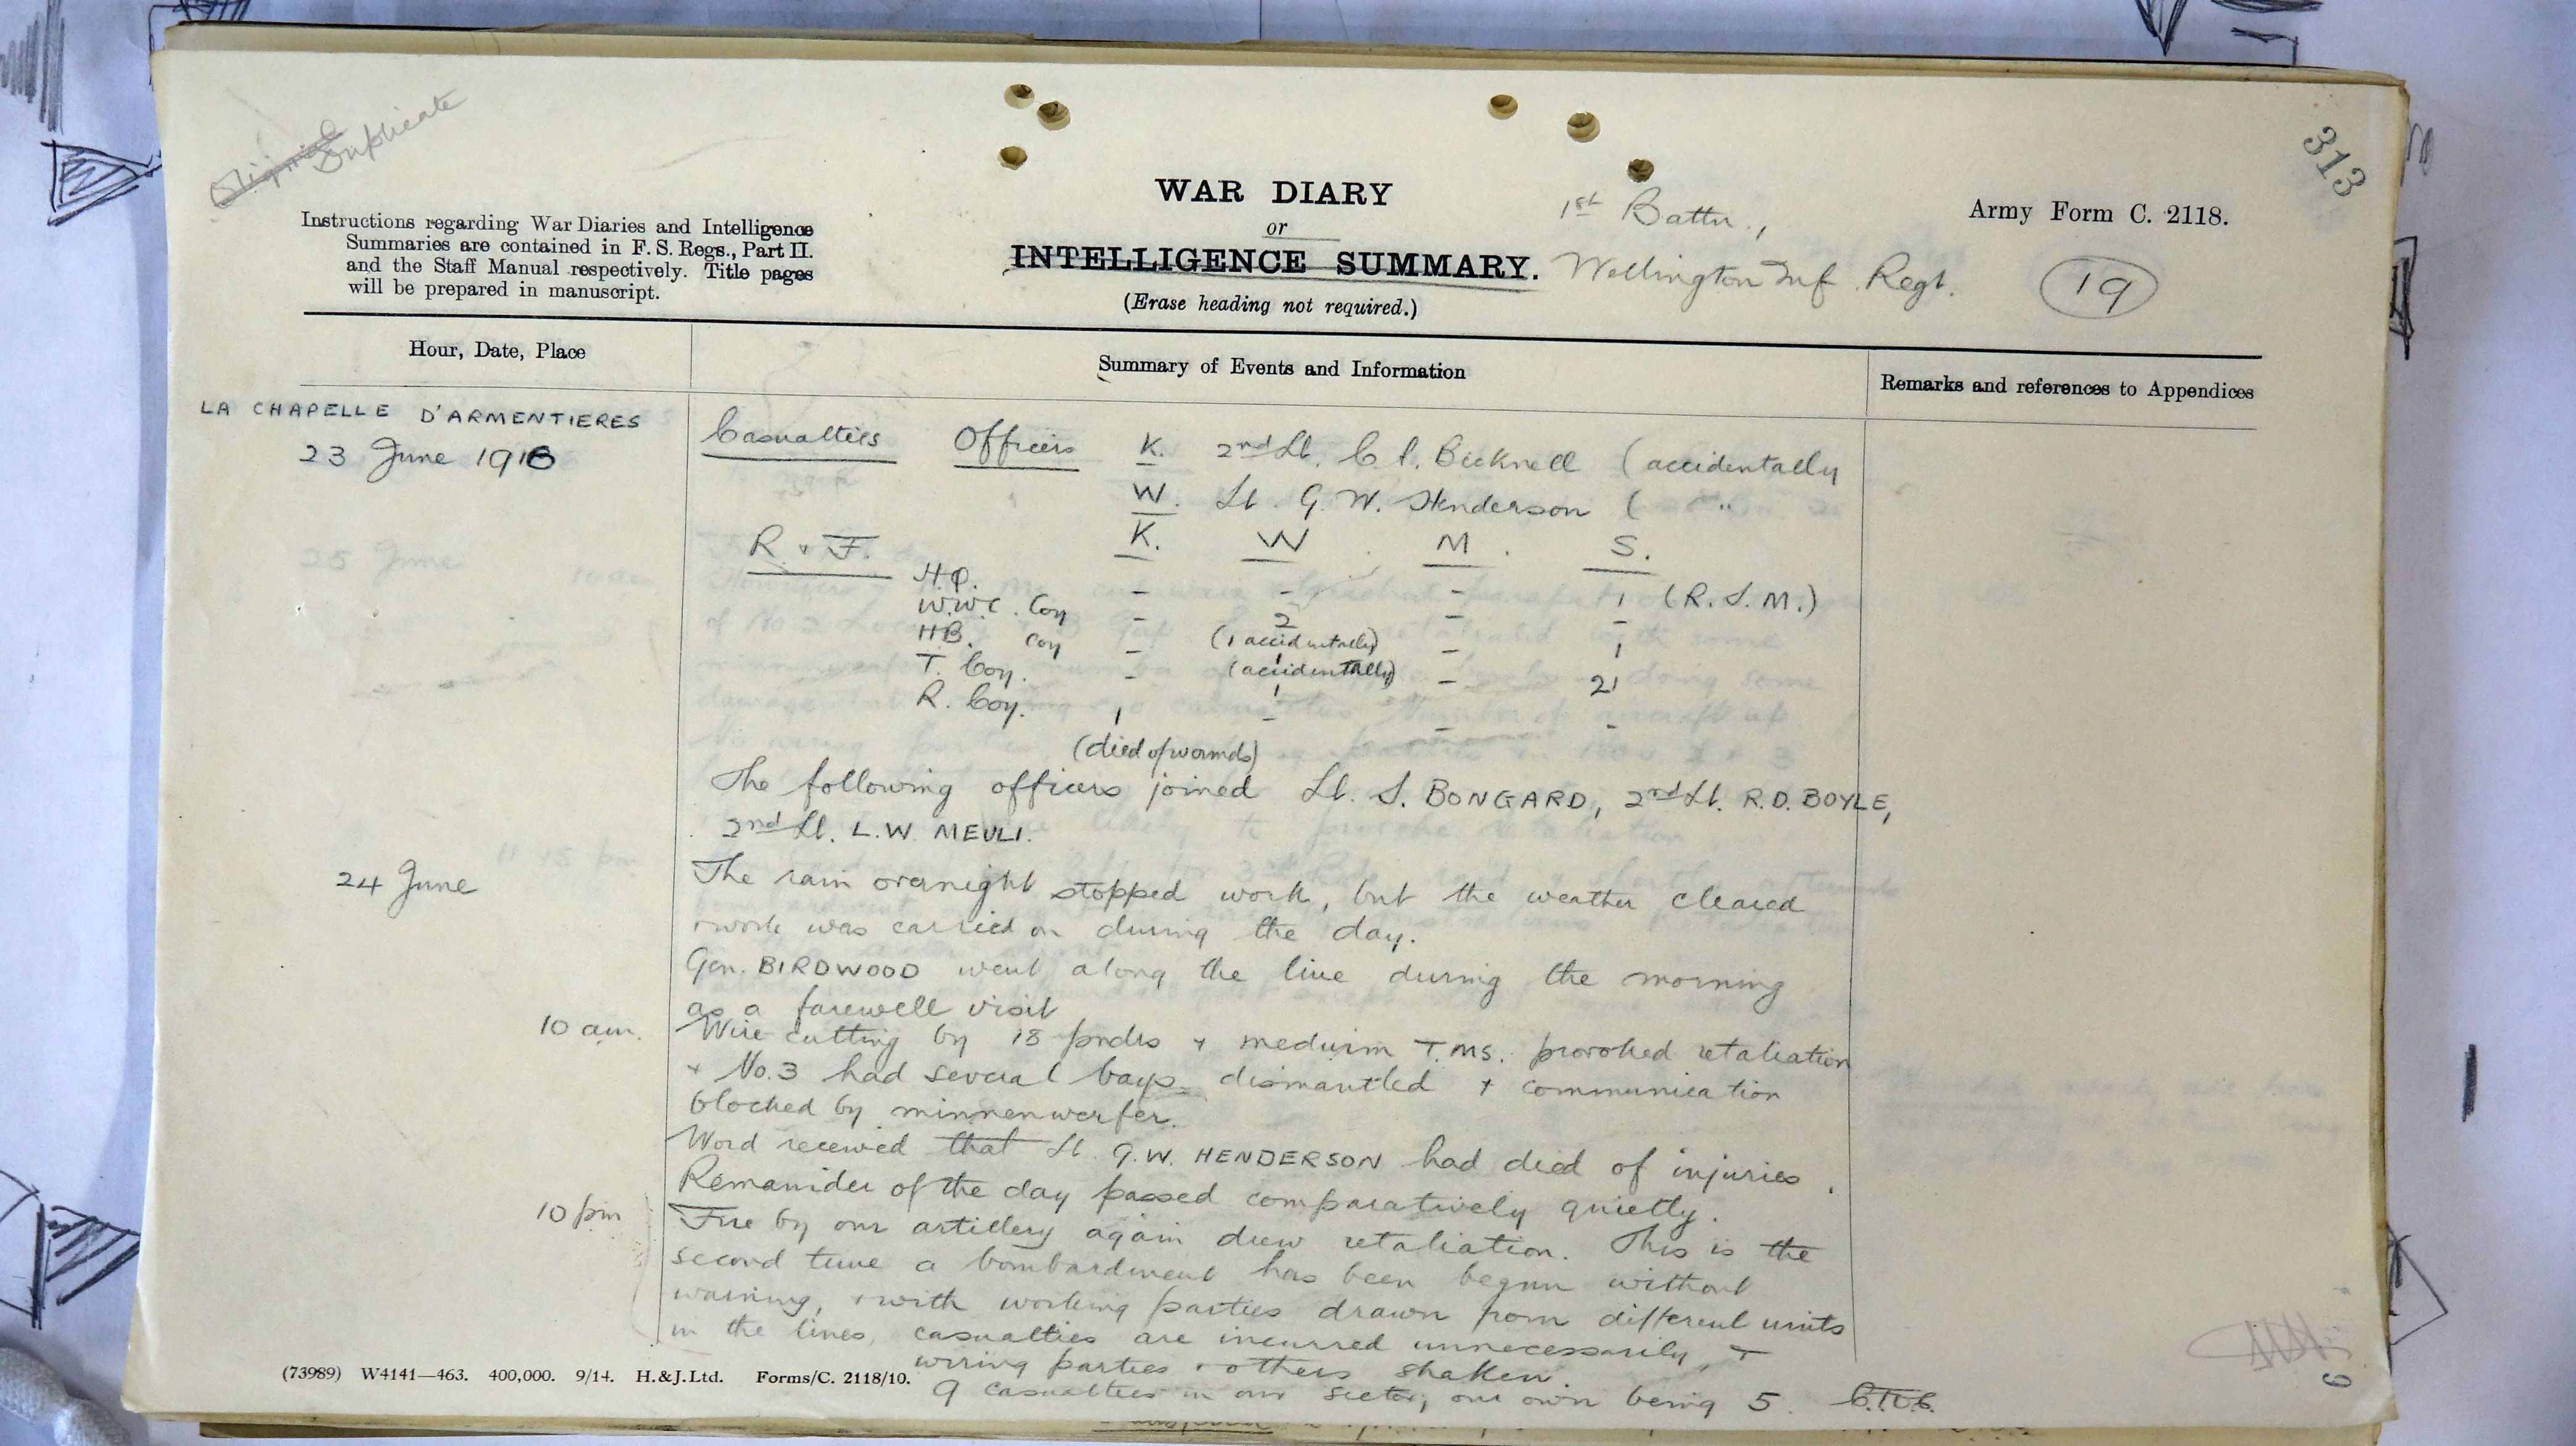 Original Duplicate
313
Instructions regarding War Diaries and Intelligence
Summaries are contained in F. S. Regs., Part II.
and the Staff Manual respectively. Title pages
will be prepared in manuscript.
WAR DIARY
or
INTELLIGENCE SUMMARY.
(Erase heading not required.)
1st Battn.,
Wellington Inf. Regt.
Army Form C. 2118.
19
Hour, Date, Place
Summary of Events and Information
Remarks and references to Appendices
LA CHAPELLE D'ARMENTIERES
23 June 1916
Casualties Officers K. 2nd Lt. C. Bicknell (accidentally
W. Lt. G. W. Henderson ( "
R & F. K. W. M. S.
H.Q. - - - 1 (R.S.M.)
W.W.C. Coy - 2 - -
(1 accidentally)
H.B. Coy - 1 - 1
(accidentally)
T. Coy. - 1 - 21
R. Coy. 1 - - -
(died of wounds)
The following officers joined Lt. S. BONGARD, 2nd Lt. R.D. BOYLE,
2nd Lt. L.W. MEULI.
24 June
The rain overnight stopped work, but the weather cleared
& work was carried on during the day.
Gen. BIRDWOOD went along the line during the morning
as a farewell visit
10 am. Wire cutting by 18 pndrs & medium T.MS. provoked retaliation
& No. 3 had several bays dismantled & communication
blocked by minnenwerfer.
Word received that Lt. G.W. HENDERSON had died of injuries.
Remainder of the day passed comparatively quietly.
10 pm Fire by our artillery again drew retaliation. This is the
second time a bombardment has been begun without
warning, & with working parties drawn from different units
in the lines, casualties are incurred unnecessarily, &
wiring parties & others shaken.
9 casualties in our sector, our own being 5.
(73989) W4141—463. 400,000. 9/14. H.&J.Ltd. Forms/C. 2118/10.